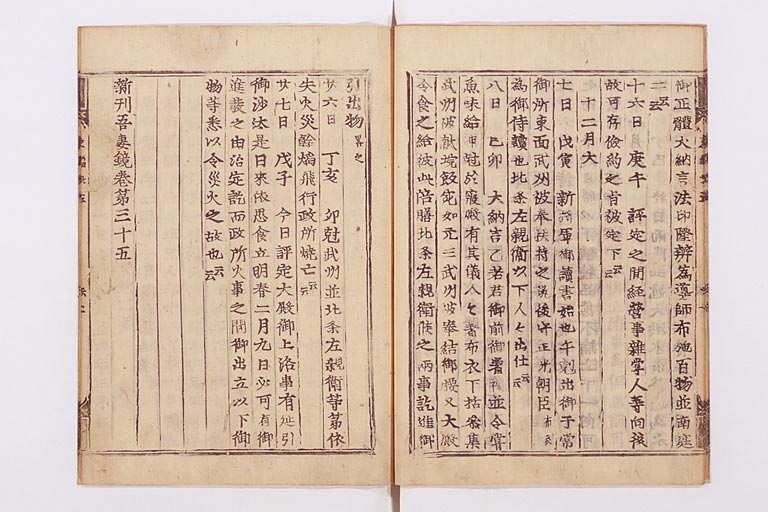 御正體大納言法印隆辨爲導師布施百物並南庭
二云云
十六日庚午 評定之間經營事雜掌人等向後
故可存儉約之旨被定下云云
十二月大
七日 戊寅 新將軍御讀書始也午剋出御于常
御所東面武州被奉扶持之後守正光朝臣布衣
為御侍讀也北条左親衛以下人々出仕云云
八日 己卯 大納言乙若君御前御著袴並令嘗
魚味給申剋於寝殿有其儀人々著布衣下括參集
武州被献埦飯宛如元三武州被奉結御腰又大殿
令含之給彼此陪膳北条左親衛候之両事訖進御
引出物畧之
廿六日 丁亥 卯剋武州並北条左親衛等第依
失火災餘焔飛行政所燒亡云云
廿七日 戊子 今日評定大殿御上洛事有延引
御沙汰是日來依思食立明春二月九日必可有御
進發之由治定訖而政所火事之間御出立以下御
物等悉以令災火之故也云云
新刊吾妻鏡巻第三十五